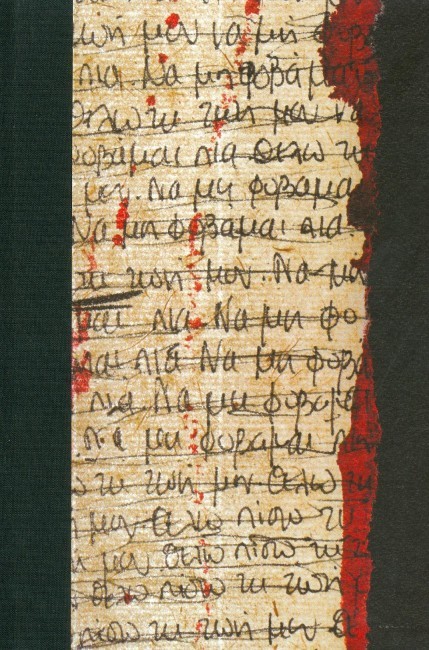 ζωή μου να μη φοβά
πια. Να μη φοβάμαι
θέλω τη ζωή μου να
φοβαμαι πια θελω τη
μου. Να μη φοβαμαι
Να μη φοβαμαι πια.
τη ζωη μου. Να μη
μαι πια. Να μη φο
μαι πια Να μη φοβα
πια. Να μη φοβαμαι
Να μη φοβαμαι πια
ω τη ζωη μου θελω τη
η μου θελω πισω τη
η μου θελω πισω τη
θελω πισω τη ζωη
πισω τη ζωη μου θε